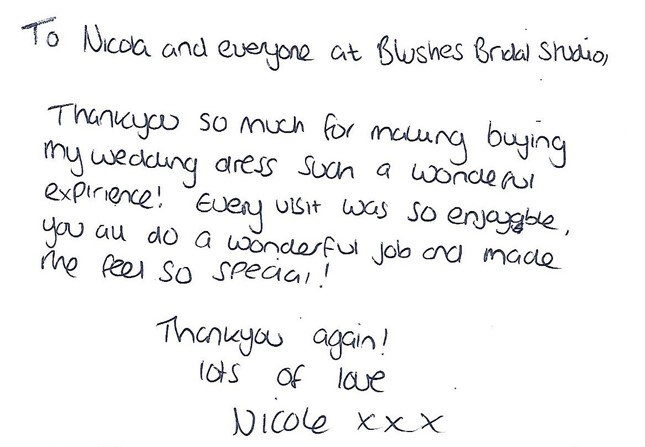 To Nicola and everyone at Blushes Bridal Studio,
Thankyou so much for making buying
my wedding dress such a wonderful
expirience! Every visit was so enjoyable,
you all do a wonderful job and made
me feel so special!
Thankyou again!
lots of love
Nicole xxx